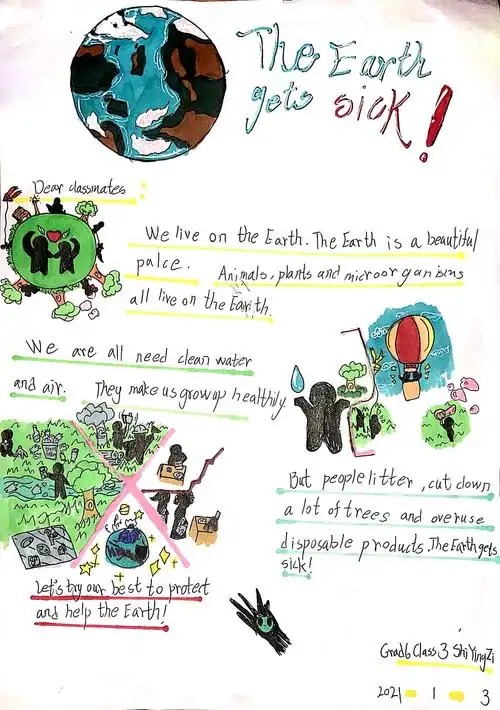 The Earth
gets sick!
Dear classmates:
We live on the Earth. The Earth is a beautiful
palce. Animals, plants and microorganisms
all live on the Earth.
We are all need clean water
and air. They make us grow up healthily.
But people litter, cut down
a lot of trees and overuse
disposable products. The Earth gets
sick!
Let's try our best to protect
and help the Earth!
Grad6 Class 3 Shi YingZi
2021 - 1 - 3